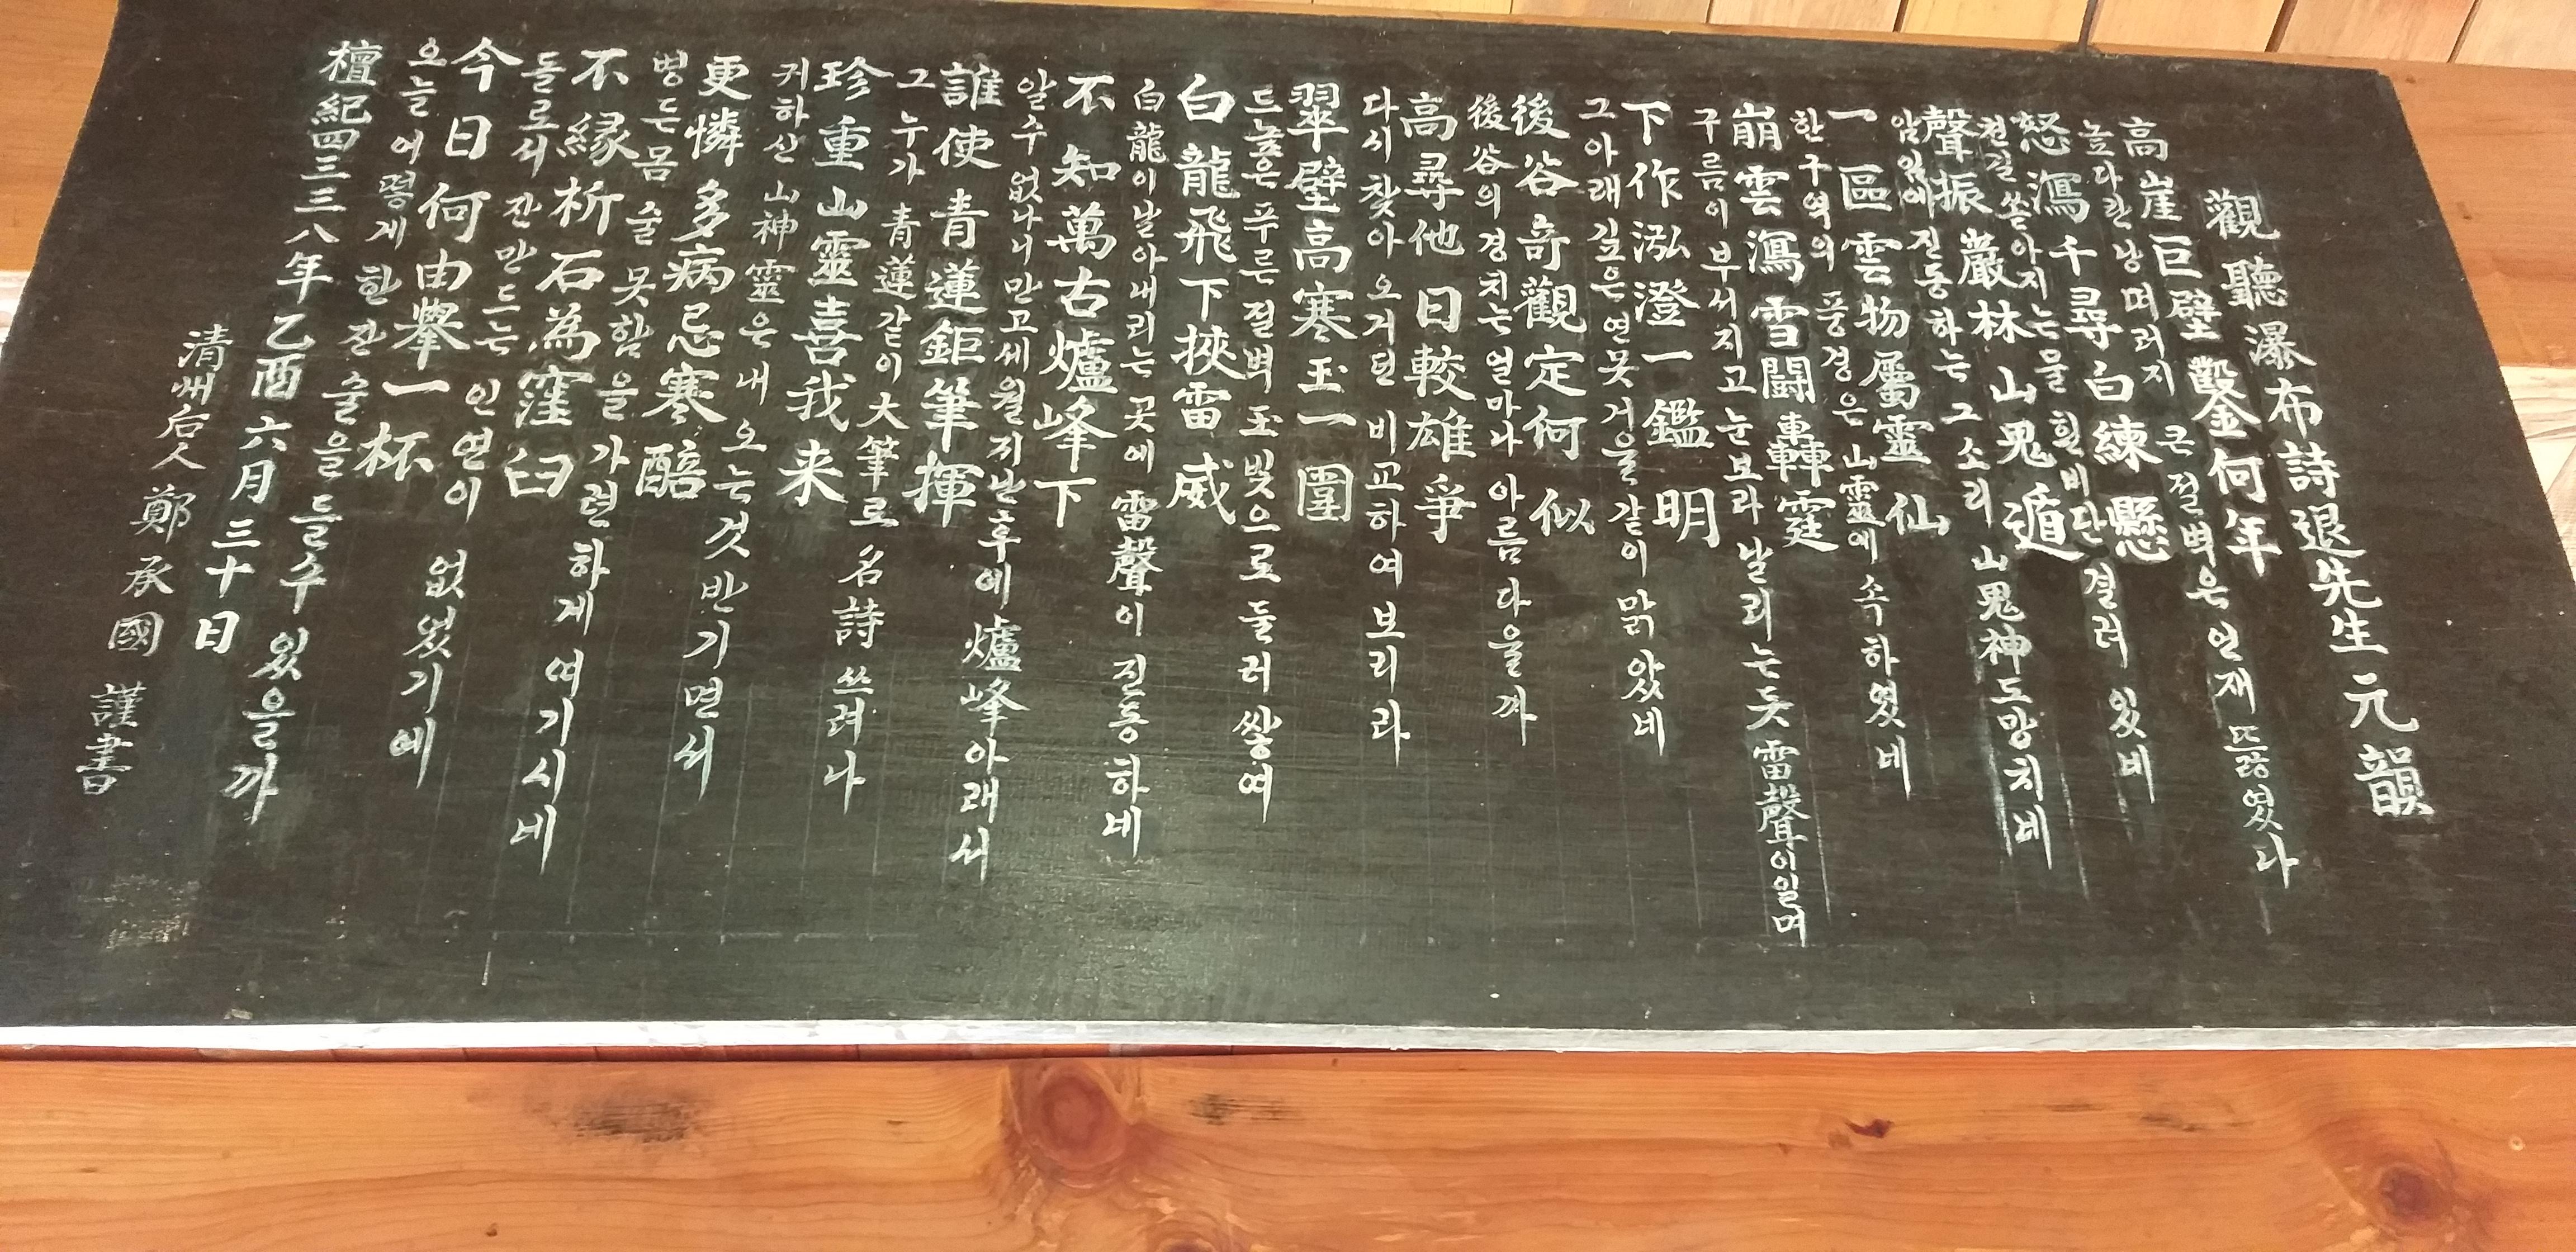 觀聽瀑布詩退先生元韻
高崖巨壁鑿何年
높다란 낭떠러지 큰 절벽은 언제 뜨랐였나
怒瀉千尋白練懸
천길 쏟아지는 물 흰 비단 결려 있네
聲振巖林山鬼遁
암임에 진동하는 그 소리 山鬼神 도망치네
一區雲物屬靈仙
한 구역의 풍경은 山靈에 속하였네
崩雲瀉雪鬪轟霆
구름이 부서지고 눈보라 날리는 듯 雷聲이 일며
下作泓澄一鑑明
그 아래 깊은 연못 거울같이 맑았네
後谷奇觀定何似
後谷의 경치는 얼마나 아름다울까
高尋他日較雄爭
다시 찾아 오거던 비교하여 보리라
翠壁高寒玉一圍
드높은 푸른 절벽 玉빛으로 둘러 쌓여
白龍飛下挾雷威
白龍이 날아 내리는 곳에 雷聲이 진동하네
不知萬古爐峰下
알 수 없나니 만고세월 지난 후에 爐峰 아래서
誰使青蓮鉅筆揮
그 누가 青蓮같이 大筆로 名詩 쓰려나
珍重山靈喜我来
귀하산 山神靈은 내 오는 것 반기면서
更憐多病忌寒醅
병든 몸 술 못함을 가련하게 여기시네
不緣析石為窪臼
돌로서 잔 만드는 인연이 없었기에
今日何由擧一杯
오늘 어떻게 한 잔 술을 들 수 있을까
檀紀四三三八年乙酉六月三十日
清州后人 鄭承國 謹書